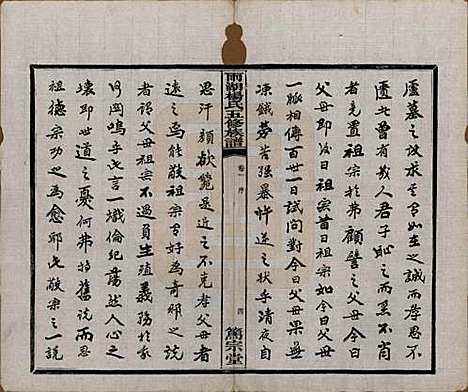 廬墓之故求其有如之誠而孝思不
匱此曾有幾人君子恥之而不為
者竟置祖宗於弗顧譬之今日父母
父母即後日祖宗昔日祖宗如今日父母
一脈相傳百世一日試問對今日父母果無
凍餓勞苦強暴忤逆之狀乎清夜自
雨湖楊氏五修族譜
卷 序
四
篤宗堂
思汗顏欲覺是近之不克孝父母者
遠之焉能敬祖宗有好為奇邪之說
者以為父母祖宗不過負生殖義務於我
何問嗚乎此言一熾倫紀蕩然人心之
壞即世道之憂何弗特舊說而
祖德宗功之為愈耶此敬宗之一說